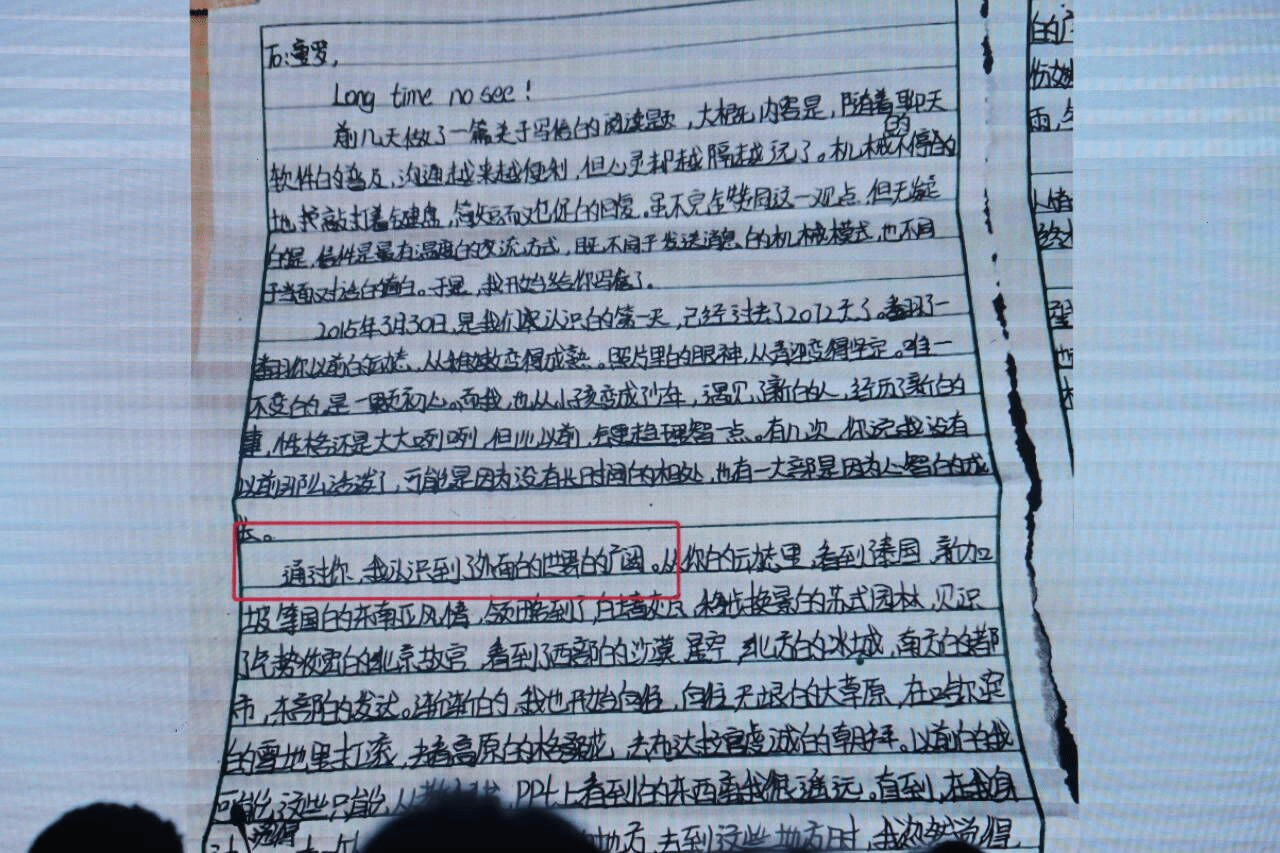 To:菠萝,
Long time no see!
前几天做了一篇关于写信的阅读题,大概内容是,随着聊天
软件的普及,沟通越来越便利,但心灵却越隔越远了。机械的不停的
地敲打着键盘,简短而又包促的回复。虽不完全赞同这一观点,但无疑
的是,信件是最有温度的交流方式,既不同于发送消息的机械模式,也不同
于当面对话的直白。于是,我开始给你写信了。
2015年3月30日,是我们认识的第一天,已经过去了2072天了。翻了一
翻你以前的动态,从稚嫩变得成熟。照片里的眼神,从青涩变得坚定。唯一
不变的,是一颗初心。而我,也从小孩变成少年,遇见了新的人,经历了新的
事,性格还是大大咧咧,但比以前,会更趋理智一点。有几次,你说我没有
以前那么活泼了,可能是因为没有长时间的相处,也有一大部是因为心智的成
长。
通过你,我认识到了外面的世界的广阔。从你的动态里,看到了泰国、新加
坡等国的东南亚风情,领略到了白墙灰瓦、移步换景的苏式园林,见识
了气势恢宏的北京故宫,看到了西部的沙漠星空,北方的冰城,南方的都
市,东部的发达。渐渐的,我也开始向往,向往无垠的大草原,在哈尔滨
的雪地里打滚,去看高原的格桑花,去布达拉宫虔诚的朝拜。以前的我
可能,这些只能从,PPt上看到的东西离我很遥远。直到,在我自
的地方,去到这些地方时,我依然觉得